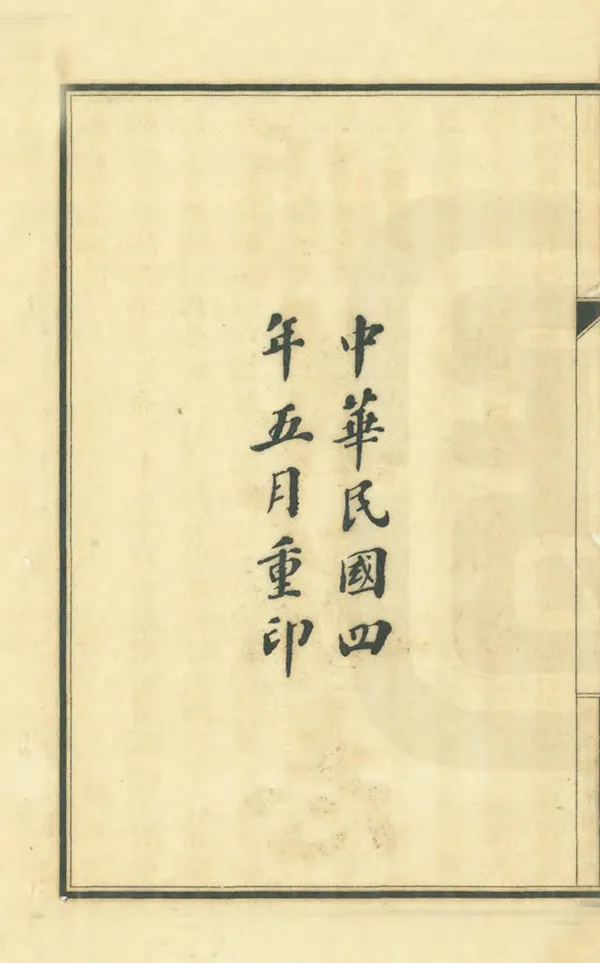 中華民國四
年五月重印